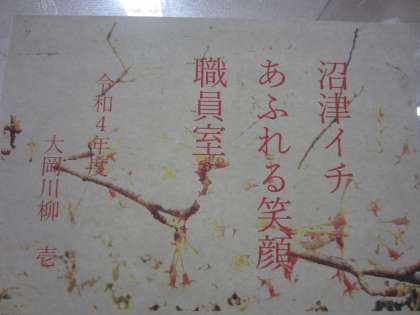 沼津イチ
あふれる笑顔
職員室
令和4年度
大岡川柳 壱